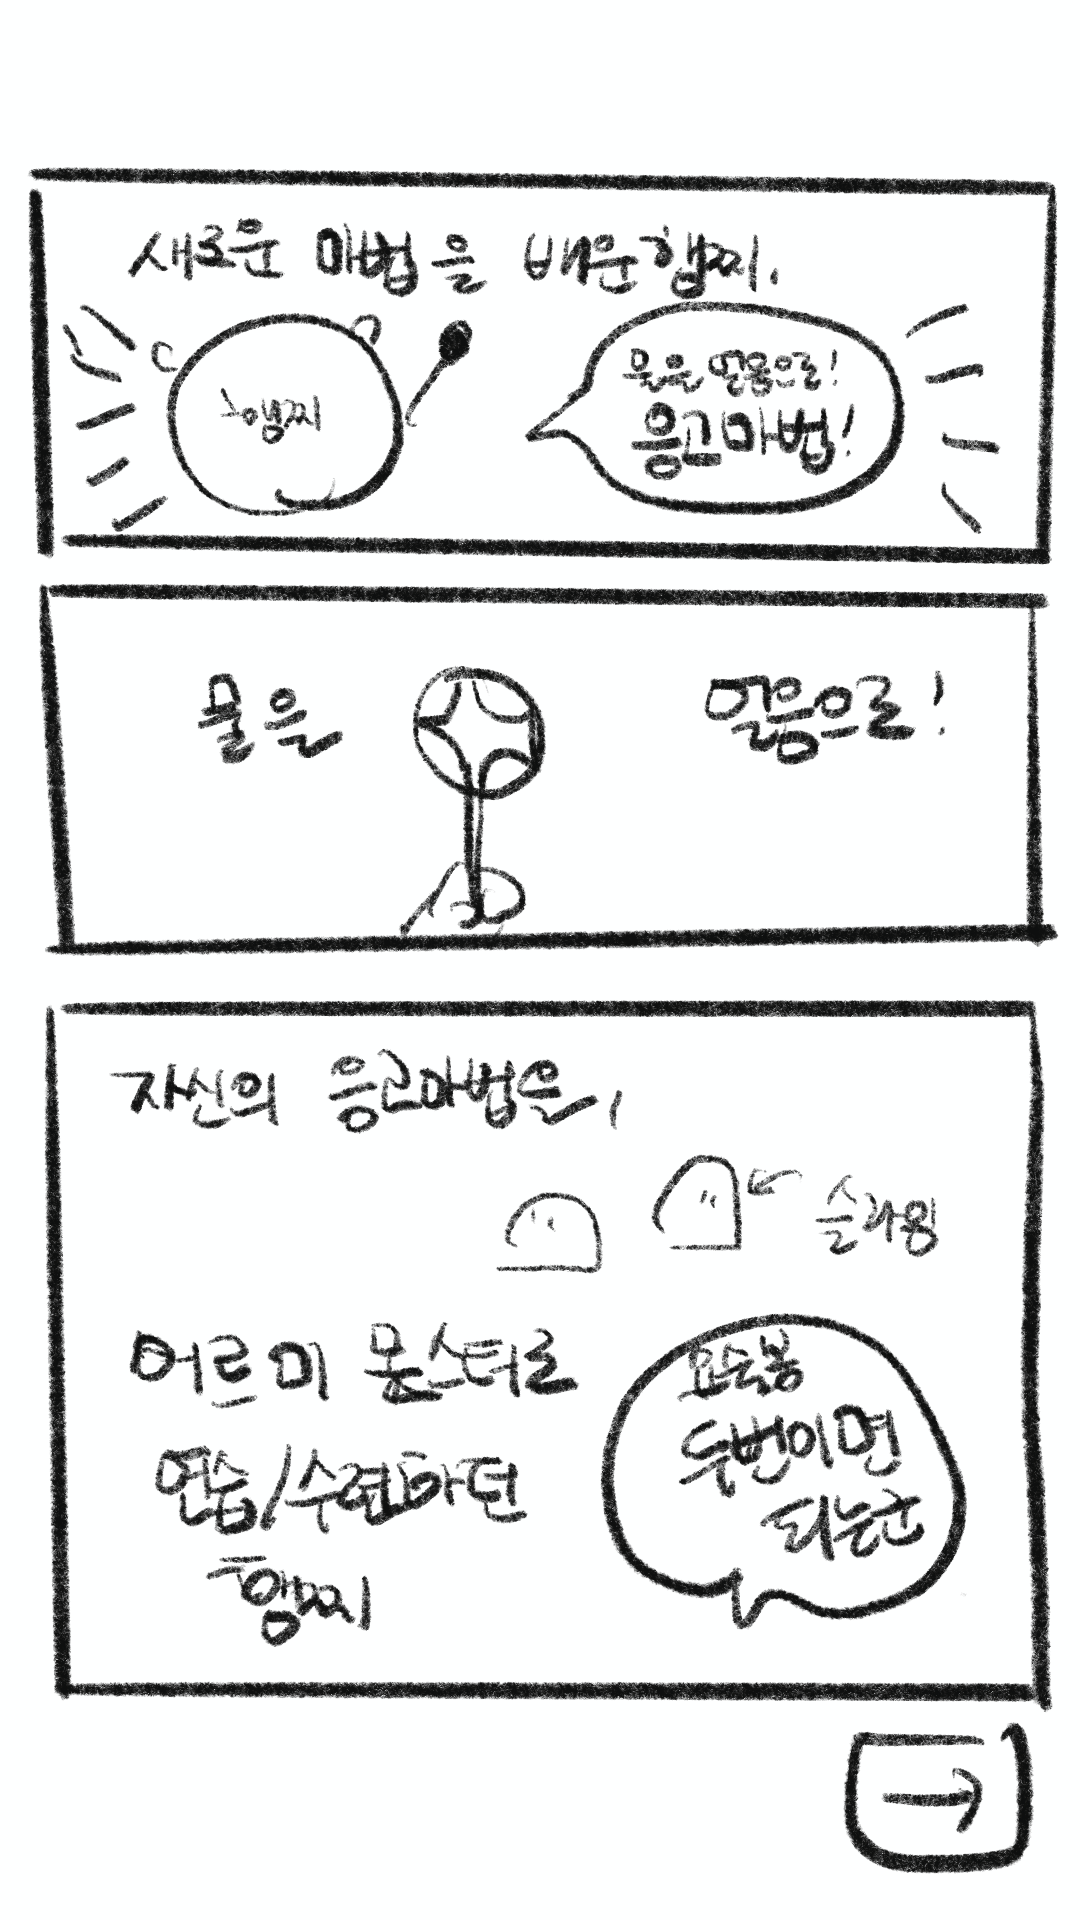 새로운 마법을 배운 햄찌.
햄찌
물을 얼음으로!
응고마법!
물을
얼음으로!
자신의 응고마법을,
슬라임
어르미 몬스터로
연습/수련하던
햄찌
요술봉
두번이면
되는군